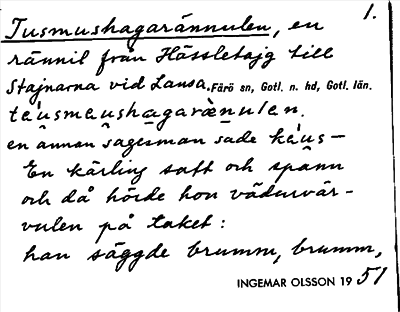 1.
Tusmushagarännulen, en
rännil från Hässletajg till
Stajnarna vid Lansa. Fårö sn, Gotl. n. hd, Gotl. län.
te̯usme̯ushagarènulen.
en annan sagesman sade ke̯us-
En kärling satt och spann
och då hörde hon vädurvär-
vulen på taket:
han säggde brumm, brumm,
INGEMAR OLSSON 1951